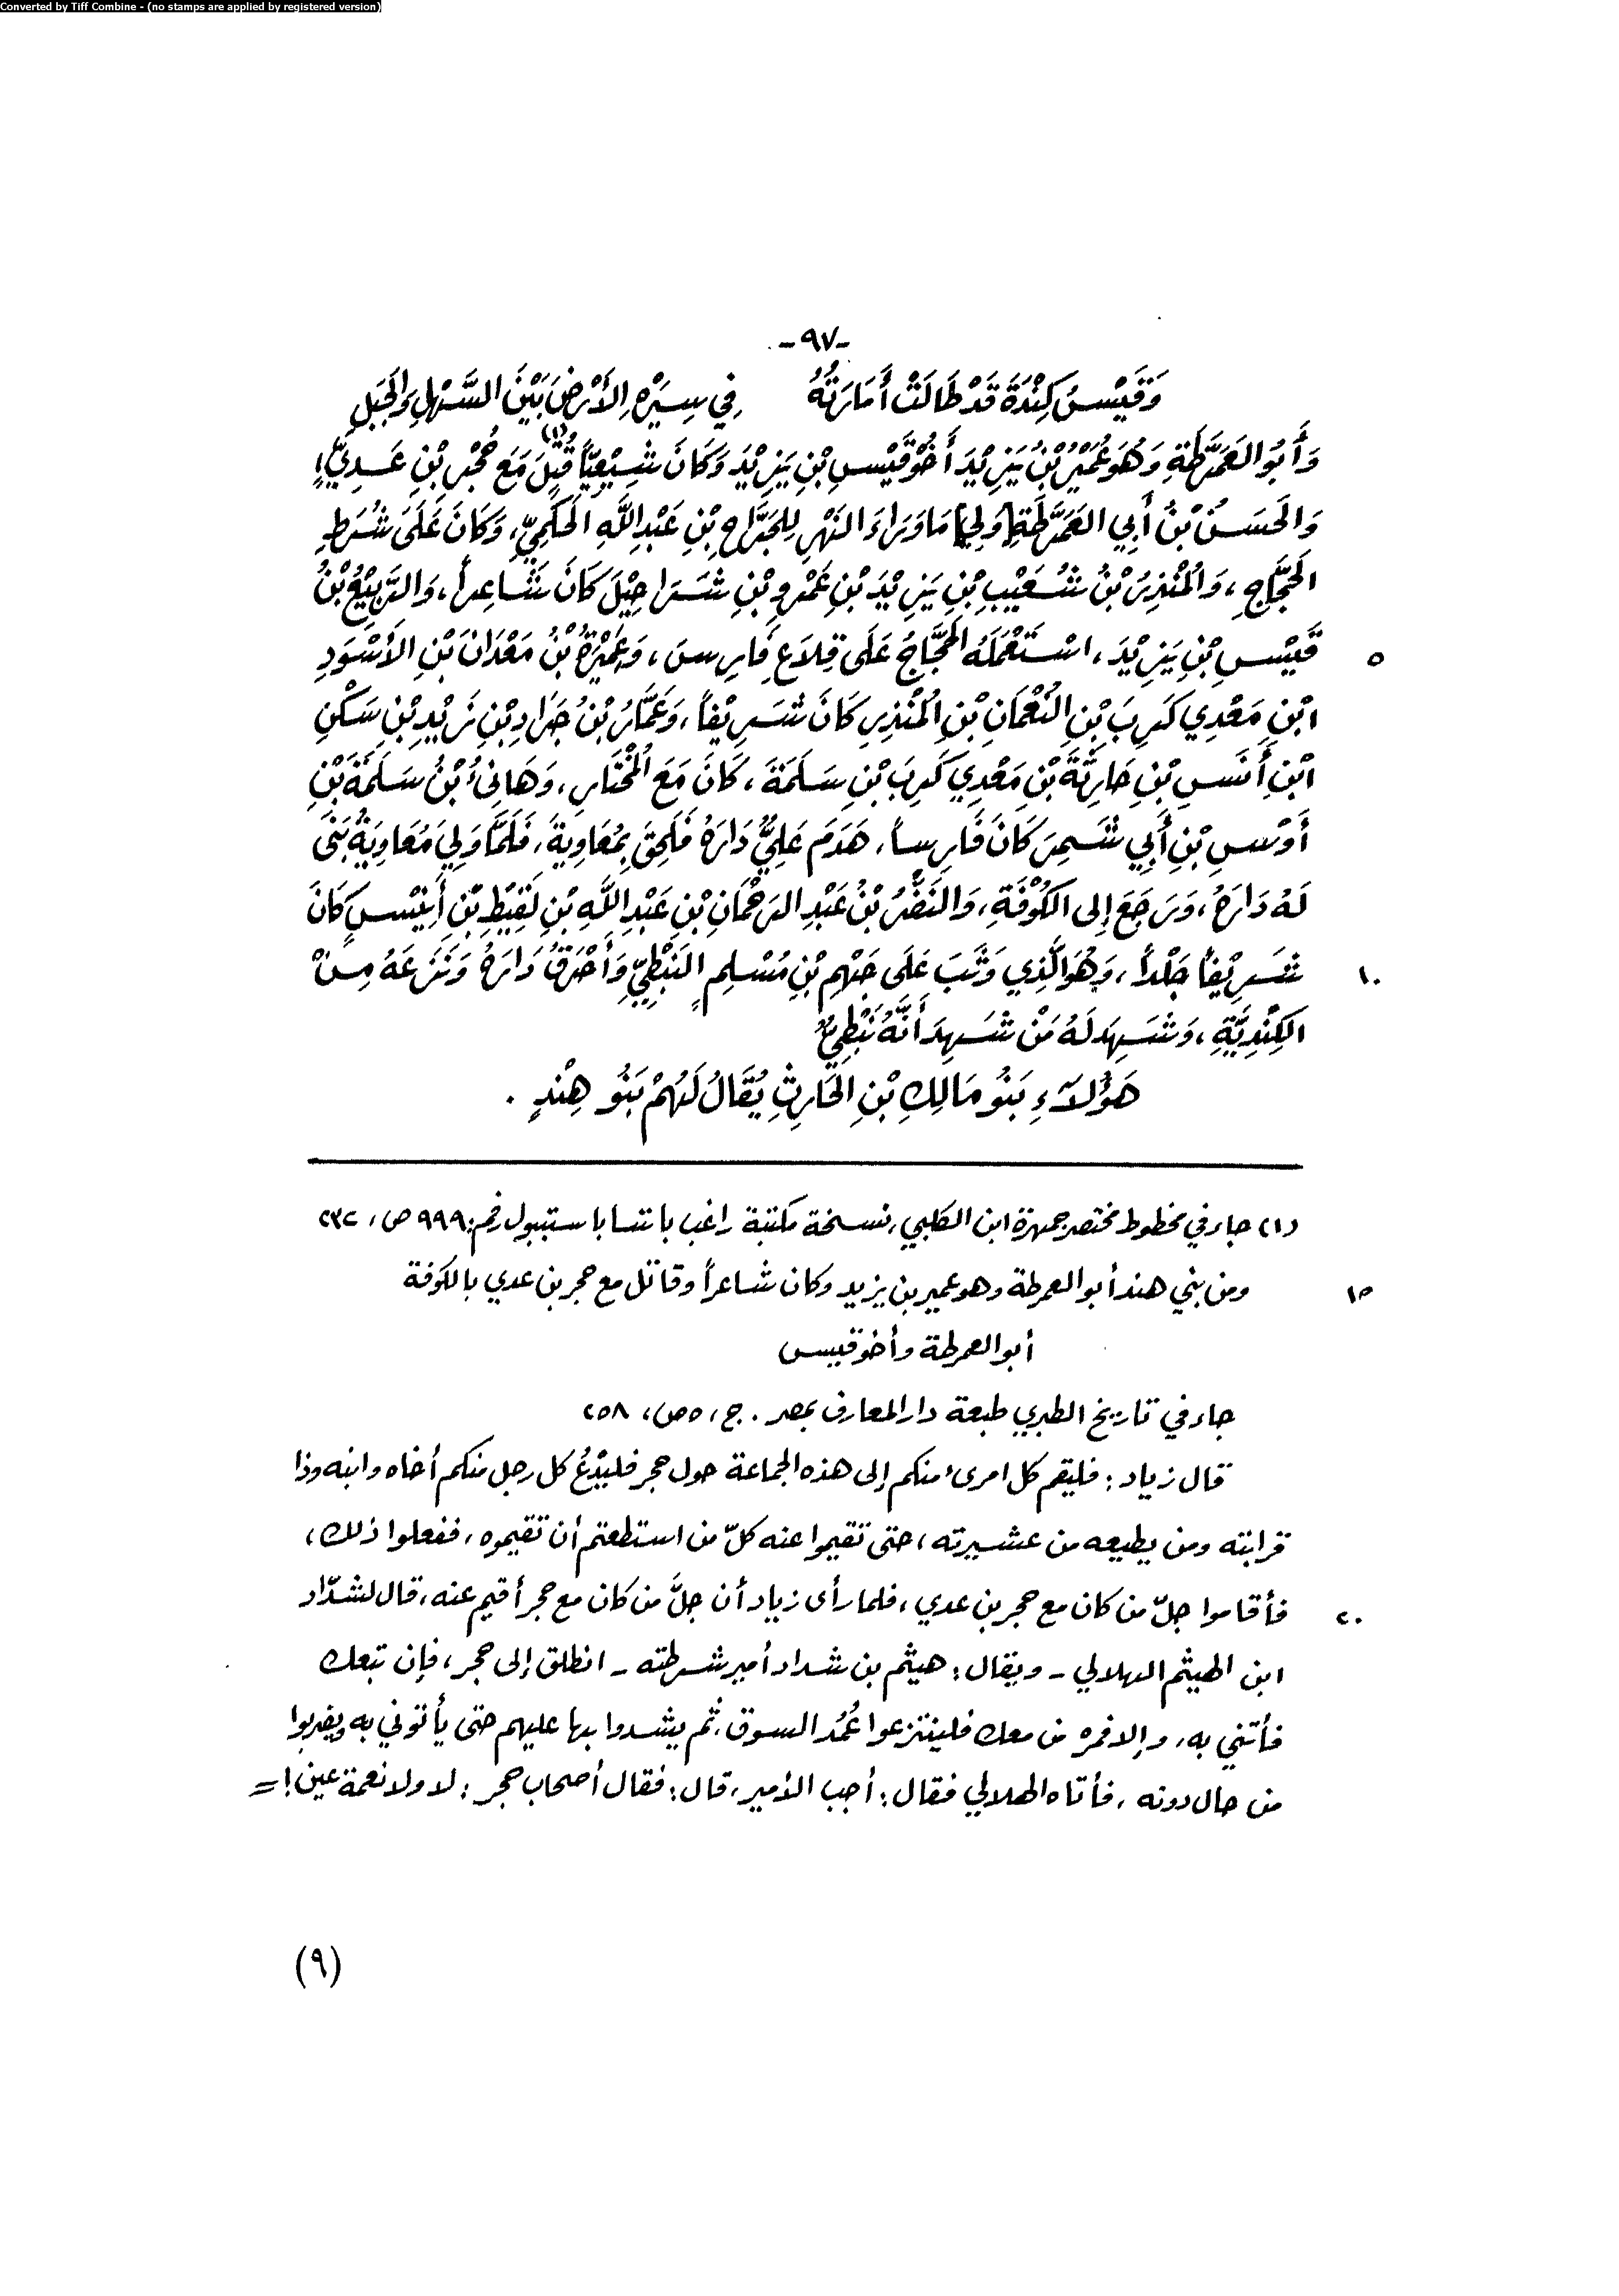 Converted by Tiff Combine - (no stamps are applied by registered version)
-٩٧-
وَقَيْسُ كِنْدَةَ قَدْ طَالَتْ أَمَارَتُهُ في سِيْرَةِ الأَرْضِ بَيْنَ السَّهْلِ وَالجَبَلِ
وَأَبُو العَمَرَّطَةِ وَهُوَ عُمَيْرُ بْنُ يَزِيْدَ أَخُو قَيْسِ بْنِ يَزِيْدَ وَكَانَ شِيْعِيّاً قُتِلَ (١) مَعَ حُجْرِ بْنِ عَدِيٍّ،
وَالحَسَنُ بْنُ أَبِي العَمَرَّطَةِ [وَلِيَ] مَا وَرَاءَ النَهْرِ لِلجَرَّاحِ بْنِ عَبْدِ اللَّهِ الحَكَمِيِّ، وَكَانَ عَلَى شُرَطِ
الحَجَّاجِ، وَالمُنْذِرُ بْنُ شُعَيْبِ بْنِ يَزِيْدَ بْنِ عَمْرِو بْنِ شَرَاحِيْلَ كَانَ شَاعِراً، وَالرَّبِيْعُ بْنُ
قَيْسِ بْنِ يَزِيْدَ، اسْتَعْمَلَهُ الحَجَّاجُ عَلَى قِلاَعِ فَارِسَ، وَعَمِيْرَةُ بْنُ مَعْدَانَ بْنِ الأَسْوَدِ ٥
ابْنِ مَعْدِي كَرِبَ بْنِ النُعْمَانِ بْنِ المُنْذِرِ كَانَ شَرِيْفاً، وَعَمَّارُ بْنُ جَرَادِ بْنِ زَيْدِ بْنِ سَكْنِ
ابْنِ أَنَسِ بْنِ حَارِثَةَ بْنِ مَعْدِي كَرِبَ بْنِ سَلَمَةَ، كَانَ مَعَ المُخْتَارِ، وَهَانِئُ بْنُ سَلَمَةَ بْنِ
أَوْسِ بْنِ أَبِي شَمِرَ كَانَ فَارِساً، هَدَمَ عَلِيٌّ دَارَهُ فَلَحِقَ بِمُعَاوِيَةَ، فَلَمَّا وَلِيَ مُعَاوِيَةُ بَنَى
لَهُ دَارَهُ، وَرَجَعَ إِلى الكُوْفَةِ، وَالنَضْرُ بْنُ عَبْدِ الرَحْمَانِ بْنِ عَبْدِ اللَّهِ بْنِ لَقِيْطِ بْنِ أُنَيْسٍ كَانَ
شَرِيْفاً جَلْداً، وَهُوَ الَّذِي وَثَبَ عَلَى جَهْمِ بْنِ مُسْلِمٍ النَبْطِيِّ وَأَحْرَقَ دَارَهُ وَنَزَعَهُ مِنْ ١٠
الكِنْدِيَّةِ، وَشَهِدَ لَهُ مَنْ شَهِدَ أَنَّهُ نَبْطِيٌّ
هَؤُلاَءِ بَنُو مَالِكِ بْنِ الحَارِثِ يُقَالُ لَهُمْ بَنُو هِنْدٍ .
(١) جاء في مخطوط مختصر جمهرة ابن الكلبي، نسخة مكتبة راغب باشا باستبول رقم: ٩٩٩ ص، ٢٣٢
ومن بني هند أبو العمرطة وهو عمير بن يزيد وكان شاعراً وقاتل مع حجر بن عدي بالكوفة ١٥
أبو العمرطة وأخو قيس
جاء في تاريخ الطبري طبعة دار المعارف بمصر . ج، ٥ ص، ٢٥٨
قال زياد : فليقم كل امرئ منكم إلى هذه الجماعة حول حجر فليَدْعُ كل رجل منكم أخاه وابنه وذا
قرابته ومن يطيعه من عشيرته، حتى تقيموا عنه كلّ من استطعتم أن تقيموه، ففعلوا ذلك،
فأقاموا جلّ من كان مع حجر بن عدي، فلما رأى زياد أن جلَّ من كان مع حجر أقيم عنه، قال لشدّاد ٢٠
ابن الهيثم الهلالي - ويقال : هيثم بن شداد أمير شرطته - انطلق إلى حجر، فإن تبعك
فأتني به، وإلا فمره من معك فلينتزعوا عُمُد السوق، ثم يشدوا بها عليهم حتى يأتوني به ويضربوا
من حال دونه، فأتاه الهلالي فقال : أجب الأمير، قال : فقال أصحاب حجر : لا ولا نعمة عين! =
(٩)